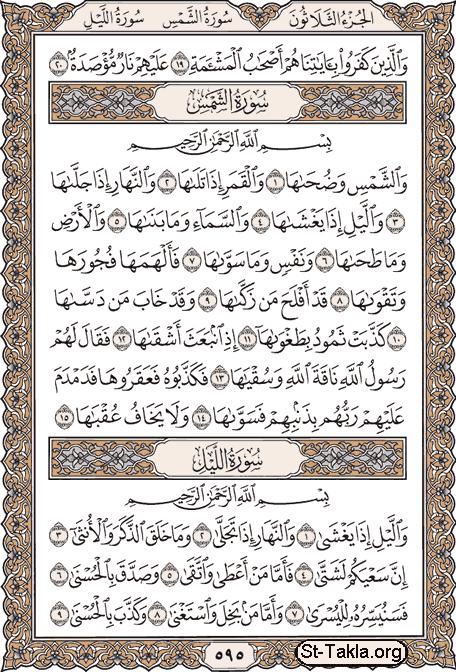 الجزء الثلاثون سورة الشمس سورة الليل
وَالَّذِينَ كَفَرُوا بِـَٔايَـٰتِنَا هُمْ أَصْحَـٰبُ الْمَشْـَٔمَةِ ١٩ عَلَيْهِمْ نَارٌ مُّؤْصَدَةٌ ٢٠
سُورَةُ الشَّمْسِ
بِسْمِ اللَّهِ الرَّحْمَـٰنِ الرَّحِيمِ
وَالشَّمْسِ وَضُحَىٰهَا ١ وَالْقَمَرِ إِذَا تَلَىٰهَا ٢ وَالنَّهَارِ إِذَا جَلَّىٰهَا
٣ وَالَّيْلِ إِذَا يَغْشَىٰهَا ٤ وَالسَّمَآءِ وَمَا بَنَىٰهَا ٥ وَالْأَرْضِ
وَمَا طَحَىٰهَا ٦ وَنَفْسٍ وَمَا سَوَّىٰهَا ٧ فَأَلْهَمَهَا فُجُورَهَا
وَتَقْوَىٰهَا ٨ قَدْ أَفْلَحَ مَن زَكَّىٰهَا ٩ وَقَدْ خَابَ مَن دَسَّىٰهَا
١٠ كَذَّبَتْ ثَمُودُ بِطَغْوَىٰهَآ ١١ إِذِ انۢبَعَثَ أَشْقَىٰهَا ١٢ فَقَالَ لَهُمْ
رَسُولُ اللَّهِ نَاقَةَ اللَّهِ وَسُقْيَـٰهَا ١٣ فَكَذَّبُوهُ فَعَقَرُوهَا فَدَمْدَمَ
عَلَيْهِمْ رَبُّهُم بِذَنۢبِهِمْ فَسَوَّىٰهَا ١٤ وَلَا يَخَافُ عُقْبَـٰهَا ١٥
سُورَةُ اللَّيْلِ
بِسْمِ اللَّهِ الرَّحْمَـٰنِ الرَّحِيمِ
وَالَّيْلِ إِذَا يَغْشَىٰ ١ وَالنَّهَارِ إِذَا تَجَلَّىٰ ٢ وَمَا خَلَقَ الذَّكَرَ وَالْأُنثَىٰٓ ٣
إِنَّ سَعْيَكُمْ لَشَتَّىٰ ٤ فَأَمَّا مَنْ أَعْطَىٰ وَاتَّقَىٰ ٥ وَصَدَّقَ بِالْحُسْنَىٰ ٦
فَسَنُيَسِّرُهُۥ لِلْيُسْرَىٰ ٧ وَأَمَّا مَنۢ بَخِلَ وَاسْتَغْنَىٰ ٨ وَكَذَّبَ بِالْحُسْنَىٰ ٩
٥٩٥
St-Takla.org